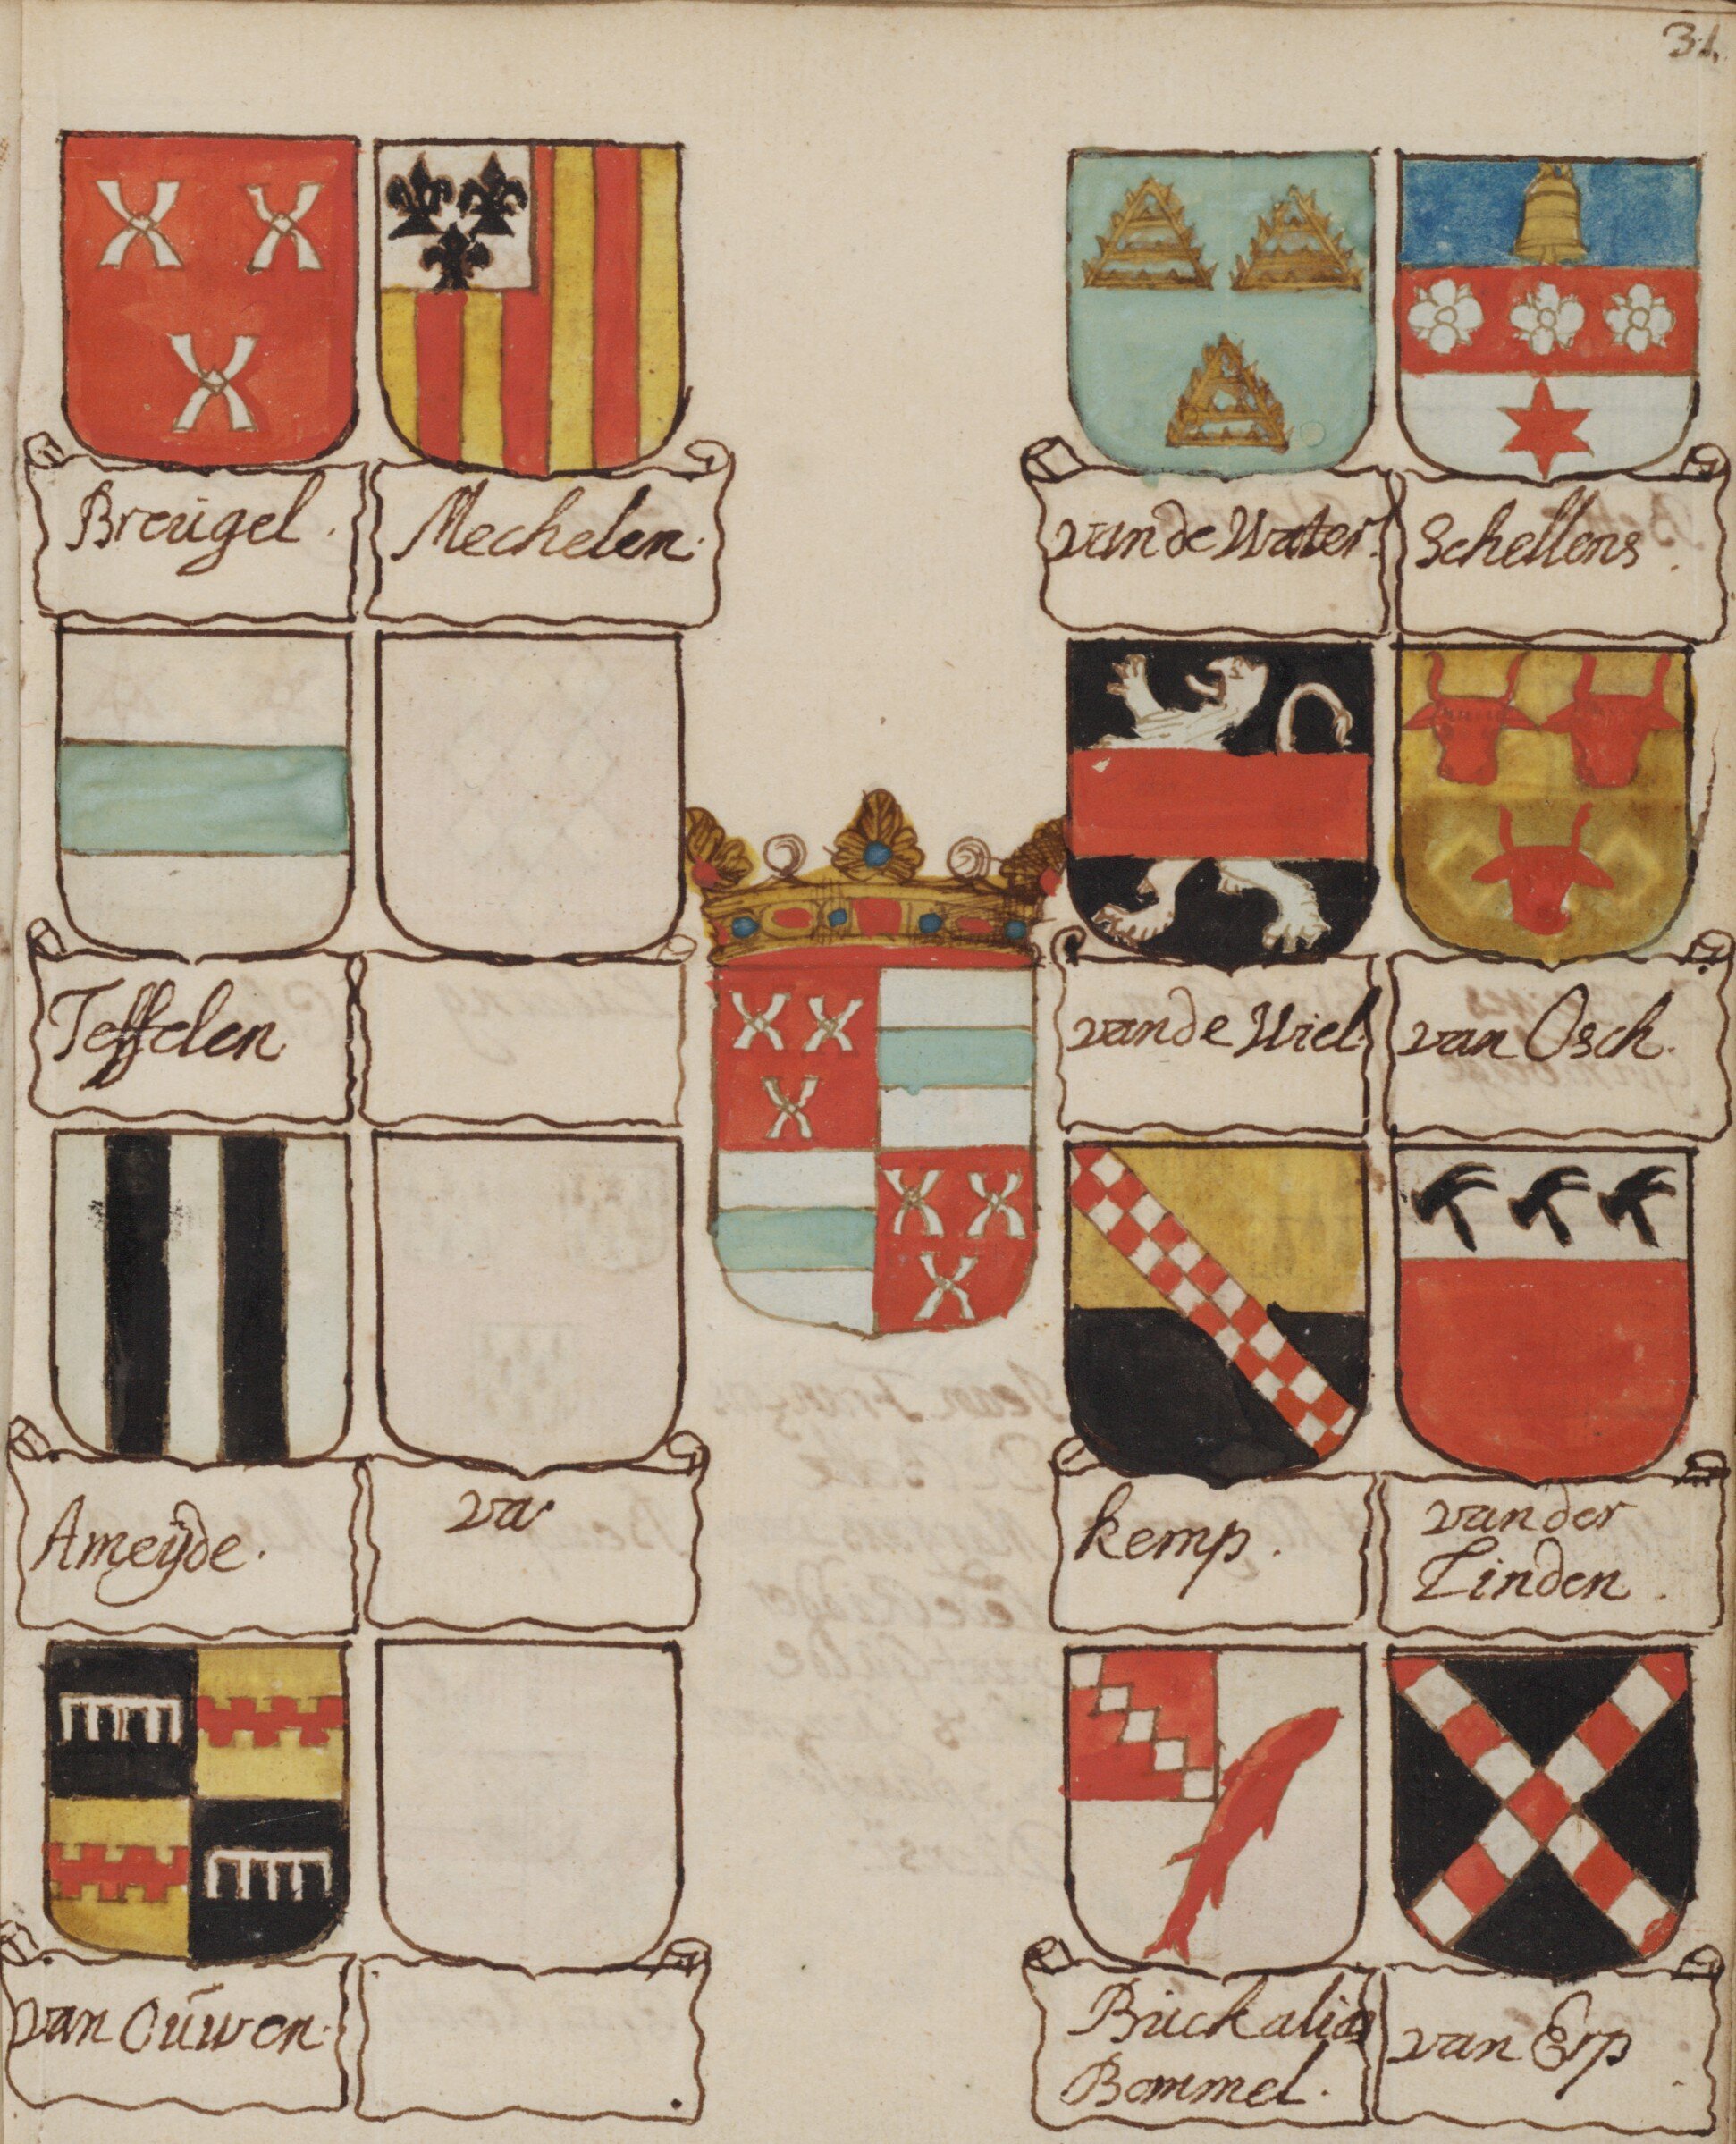 31.
Breugel.
Mechelen.
van de Water.
Schellens.
Teffelen
van de Wiel.
van Osch.
Ameÿde.
va
kemp.
van der
Linden.
van Oúwen.
Buckalias
Bommel.
van Erp